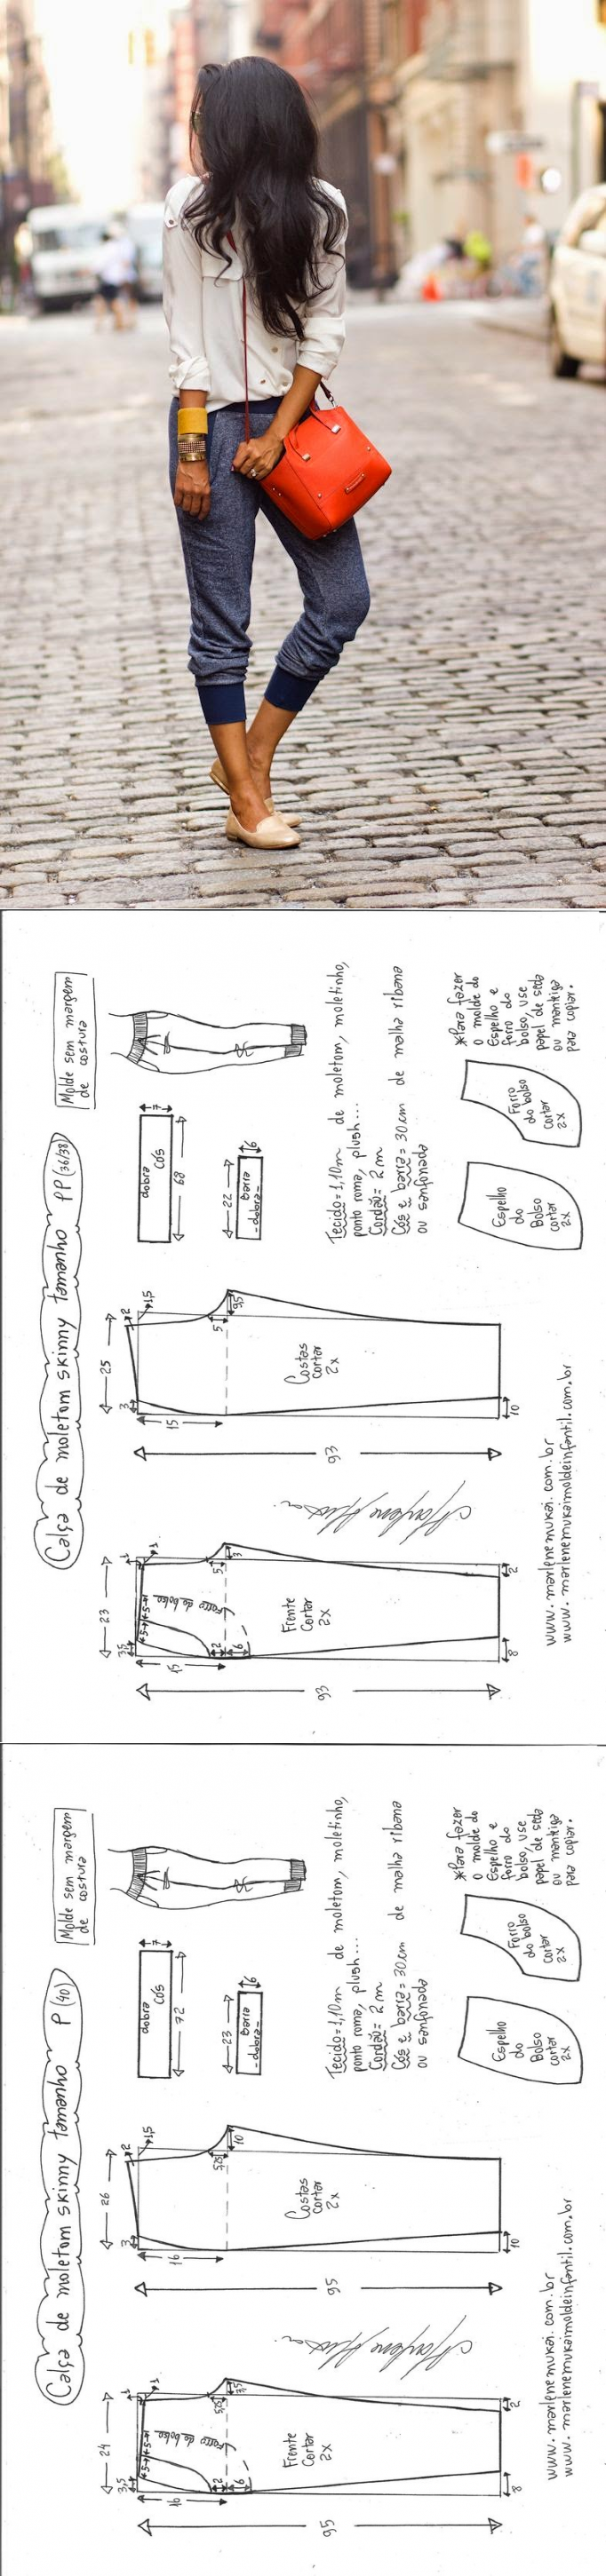 Calça de moletom skinny tamanho PP (36/38)
Molde sem margem
de costura
23
1
1
3,5
5
5
Forro do bolso
15
5
3
2
6
Frente
Cortar
2x
93
8
2
25
2
1,5
3
15
5
9,5
Costas
Cortar
2x
93
10
dobra
Cós
7
68
22
6
Barra
-dobra-
Tecido=1,10m de moletom, moletinho,
ponto roma, plush...
Cordão= 2m
Cós e barra= 30cm de malha ribana
ou sanfonada
Espelho
do
Bolso
cortar
2x
Forro
do bolso
Cortar
2x
*Para fazer
o molde do
Espelho e
forro do
bolso, use
papel de seda
ou manteiga
para copiar.
www.marlenemukai.com.br
www.marlenemukaimoldeinfantil.com.br
Calça de moletom skinny tamanho P (40)
Molde sem margem
de costura
24
1
1
3,5
5
5
Forro do bolso
16
3,5
2
6
Frente
Cortar
2x
95
8
2
26
2
1,5
3
16
10
Costas
Cortar
2x
95
10
dobra
Cós
7
72
23
6
Barra
-dobra-
Tecido=1,10m de moletom, moletinho,
ponto roma, plush...
Cordão= 2m
Cós e barra= 30cm de malha ribana
ou sanfonada
Espelho
do
Bolso
cortar
2x
Forro
do bolso
Cortar
2x
*Para fazer
o molde do
Espelho e
forro do
bolso, use
papel de seda
ou manteiga
para copiar.
www.marlenemukai.com.br
www.marlenemukaimoldeinfantil.com.br